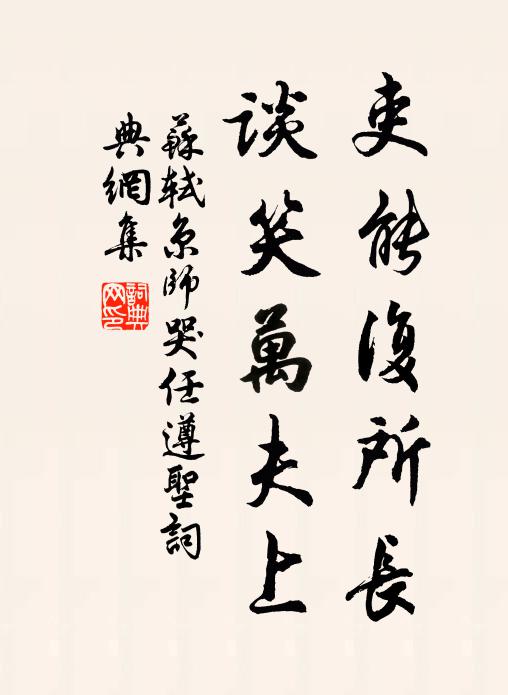 吏能復所長
談笑萬夫上
蘇軾京師哭任遵聖詞
典網集
詞典網印